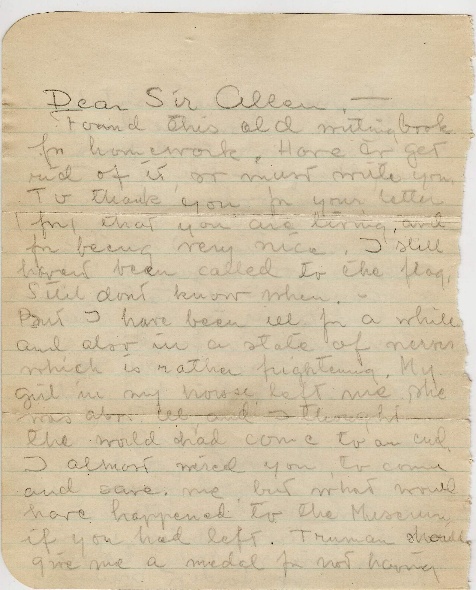 Dear Sir Allen, —
Found this old writing book
for homework. Have to get
rid of it, so must write you.
To thank you for your letter
for that you are living, and
for being very nice. I still
havent been called to the flag,
Still dont know when. -
But I have been ill for a while
and also in a state of nerves
which is rather frightening. My
girl in my house, left me she
was also ill and I thought
the world had come to an end.
I almost wired you, to come
and save. me, but what would
have happened to the Museum,
if you had left. Truman should
give me a medal for not having